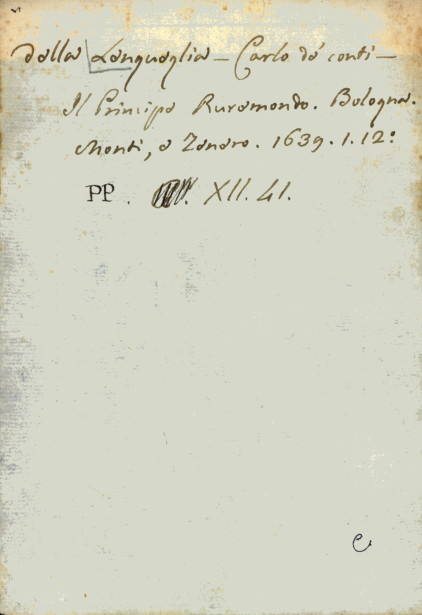 della Lengueglia - Carlo de' conti -
Il Principe Ruremondo. Bologna.
Monti, e Zenero. 1639. 1. 12:
PP. XII. 41.
e